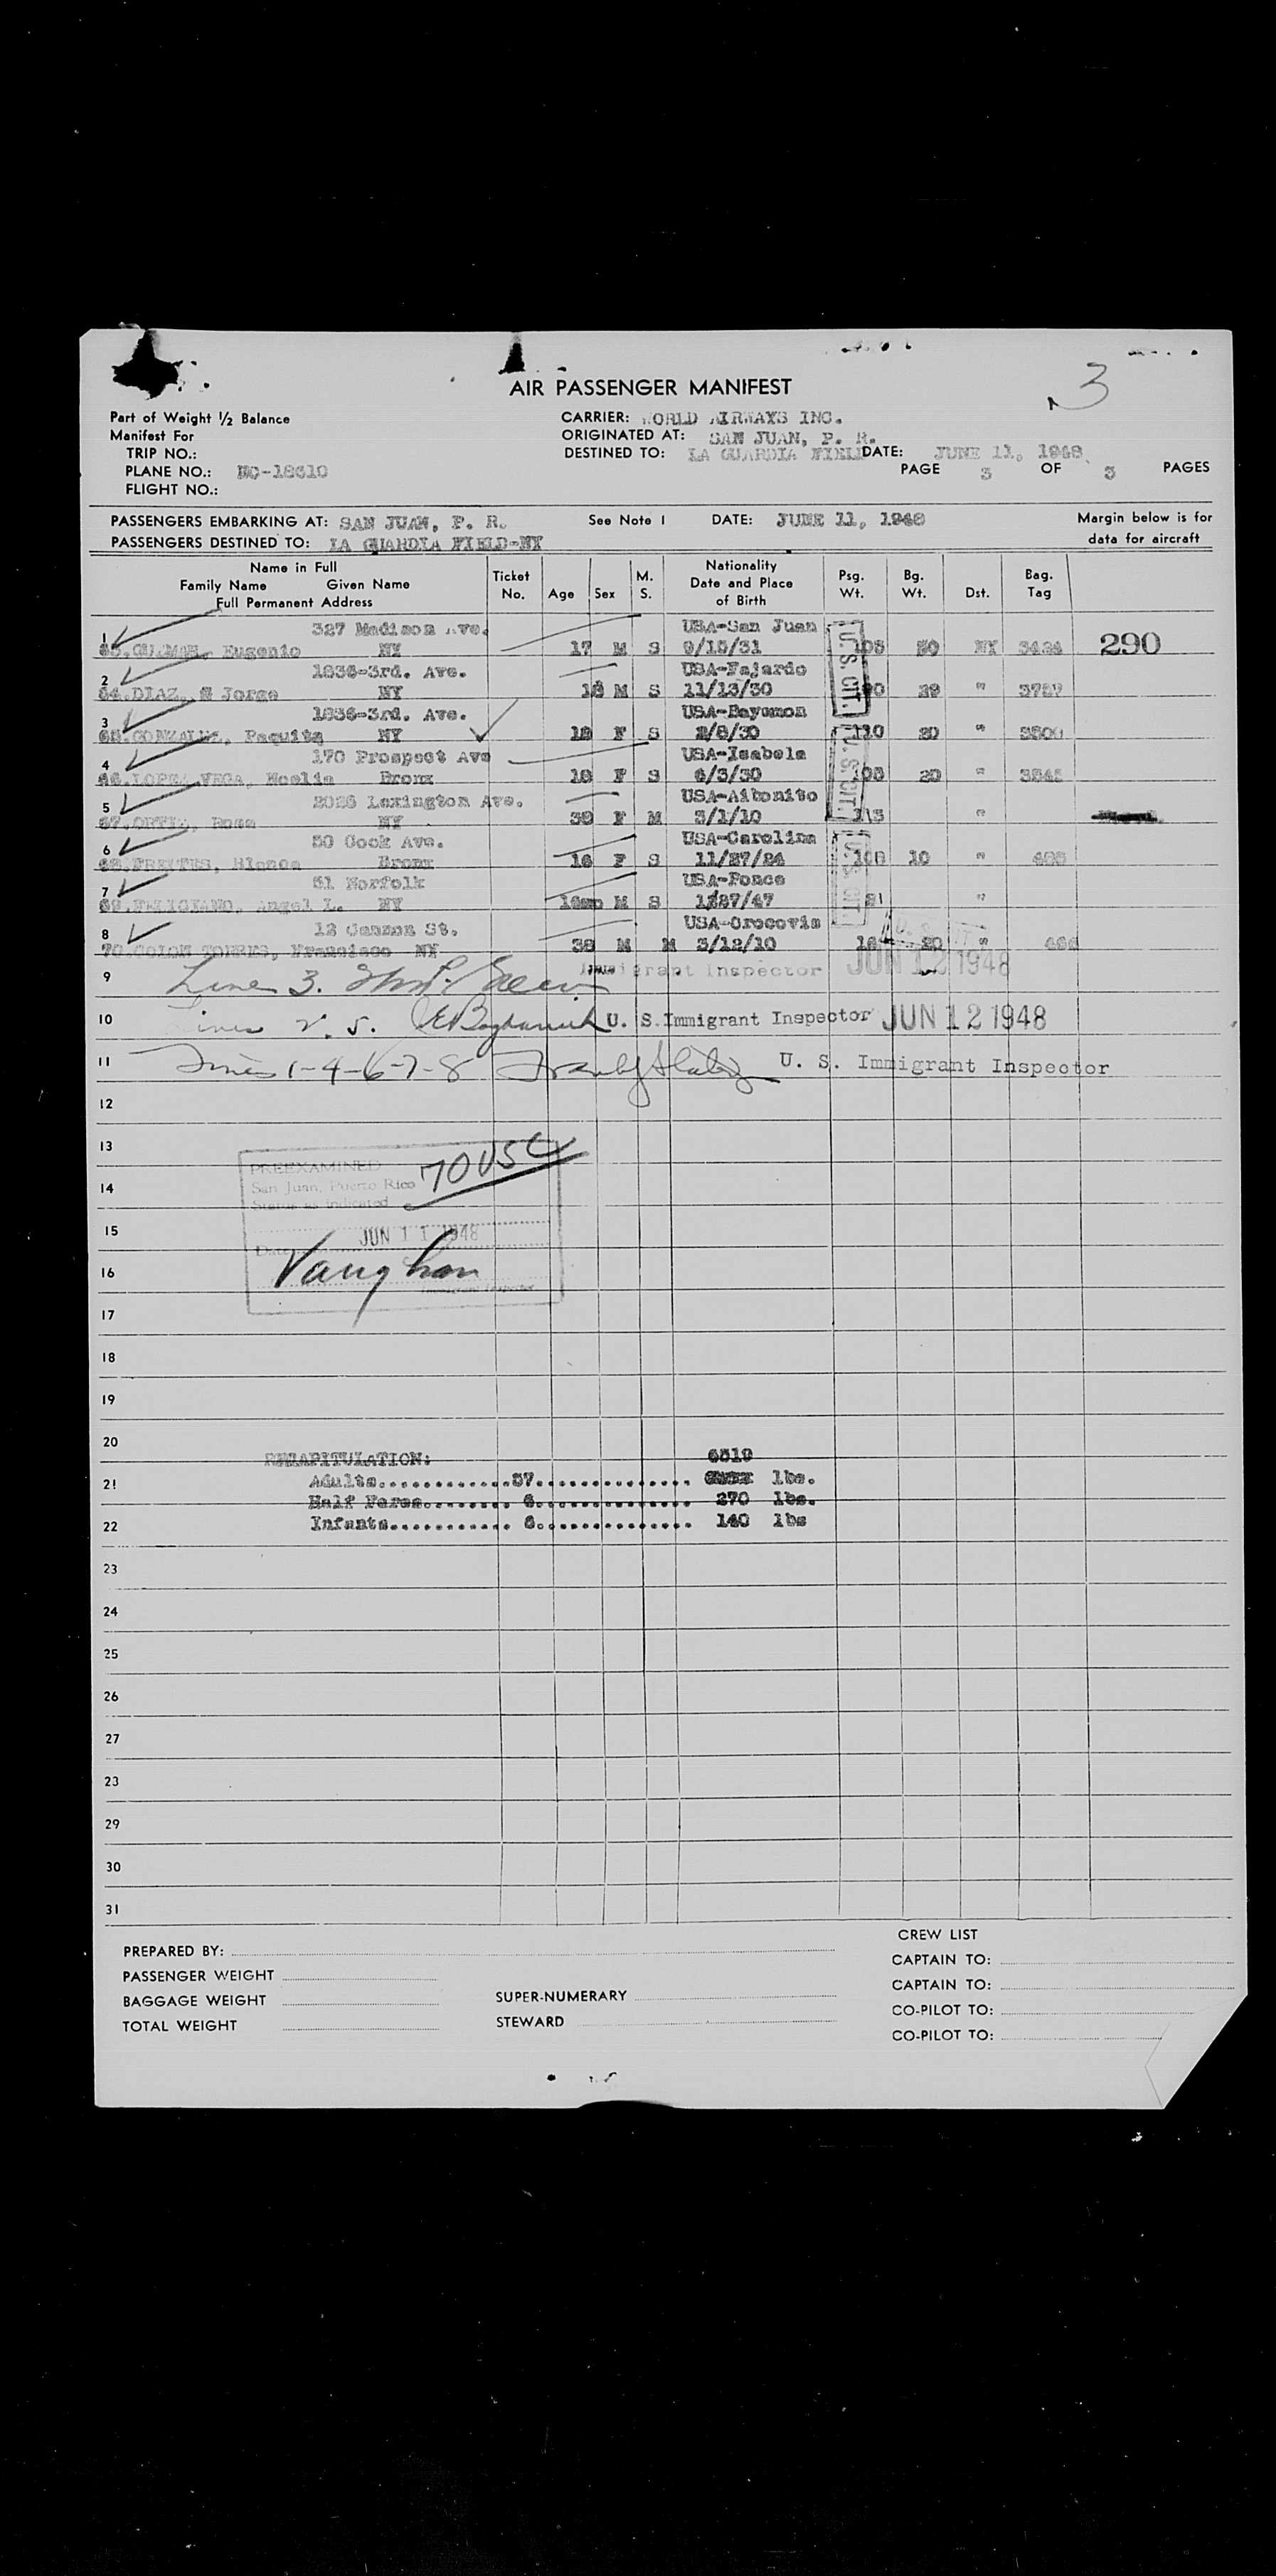 3
AIR PASSENGER MANIFEST
Part of Weight ½ Balance
Manifest For
TRIP NO.:
PLANE NO.: NC-18610
FLIGHT NO.:
CARRIER: WORLD AIRWAYS INC.
ORIGINATED AT: SAN JUAN, P. R.
DESTINED TO: LA GUARDIA FIELD DATE: JUNE 11, 1948
PAGE 3 OF 3 PAGES
PASSENGERS EMBARKING AT: SAN JUAN, P. R. See Note 1 DATE: JUNE 11, 1948
PASSENGERS DESTINED TO: LA GUARDIA FIELD-NY
Margin below is for
data for aircraft
Name in Full
Family Name Given Name
Full Permanent Address
Ticket No.
Age
Sex
M. S.
Nationality
Date and Place
of Birth
Psg. Wt.
Bg. Wt.
Dst.
Bag. Tag
327 Madison Ave. USA-San Juan
1 GUZMAN, Eugenio NY 17 M S 9/15/31 NY 3424 290
1836-3rd. Ave. USA-Fajardo
2 64. DIAZ, Jorge NY M S 11/13/30 "
1836-3rd. Ave. USA-Bayamon
3 65. GONZALEZ, Paquita NY 18 F S 2/8/30 110 20 "
170 Prospect Ave USA-Isabela
4 66. LOPEZ VEGA, Noelia Bronx 18 F S 6/3/30 20 "
2026 Lexington Ave. USA-Aibonito
5 67. ORTIZ, Rosa NY F M 3/1/10 "
50 Cook Ave. USA-Carolina
6 68. Blanca Bronx 16 F S 11/27/24 10 "
51 Norfolk USA-Ponce
7 69. FELICIANO, Angel L. NY M S "
12 Cannon St. USA-Orocovis
8 70. COLON TORRES, Francisco NY 38 M M 3/12/10 20 "
U.S. CIT.
U.S. CIT.
U.S. CIT.
9 Line 3. Immigrant Inspector JUN 12 1948
10 Lines 2. 5. U. S. Immigrant Inspector JUN 12 1948
11 Lines 1-4-6-7-8 U. S. Immigrant Inspector
12
13
14
15
16
17
18
19
20
PREEXAMINED
San Juan, Puerto Rico
Status as indicated
70 USC
JUN 11 1948
Date
Vaughan
Immigrant Inspector
RECAPITULATION: 6519
21 Adults............57.............. lbs.
Half Fares......... 6.............. 270 lbs.
22 Infants............ 8.............. 140 lbs
23
24
25
26
27
23
29
30
31
PREPARED BY:
PASSENGER WEIGHT
BAGGAGE WEIGHT
TOTAL WEIGHT
SUPER-NUMERARY
STEWARD
CREW LIST
CAPTAIN TO:
CAPTAIN TO:
CO-PILOT TO:
CO-PILOT TO: